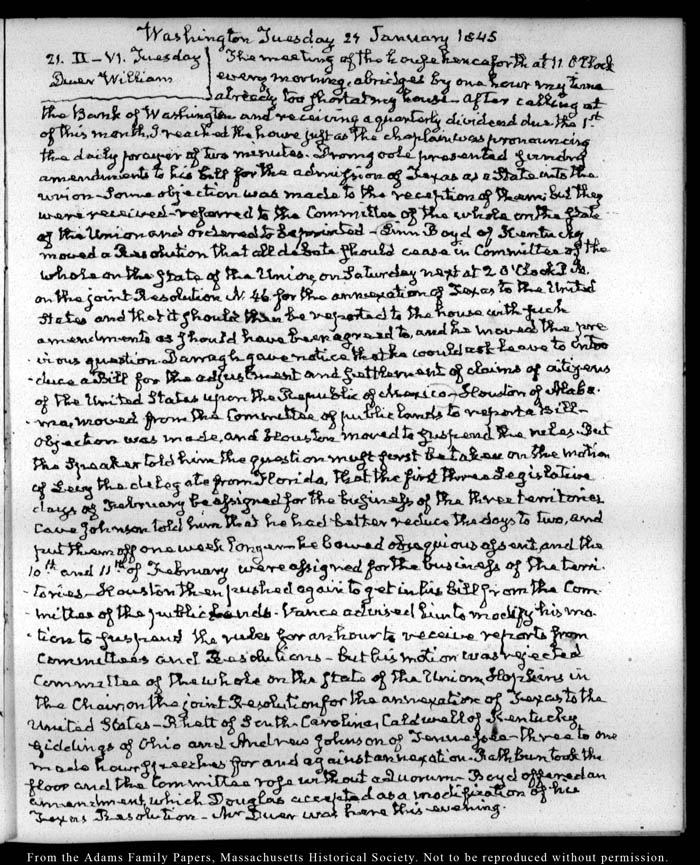 Washington Tuesday 21 January 1845
21. II-VI. Tuesday
Duer William
The meeting of the house henceforth at 11. O'Clock
every morning, abridges by one hour my time
already too short at my house - After calling at
the Bank of Washington and receiving a quarterly dividend due the 1st
of this month, I reached the house just as the chaplain was pronouncing
the daily prayer of two minutes. Dromgoole presented sundry
amendments to his bill for the admission of Texas as a State into the
union - Some objection was made to the reception of them; but they
were received - referred to the Committee of the whole on the state
of the Union and ordered to be printed - Linn Boyd of Kentucky
moved a Resolution that all debate should cease in Committee of the
whole on the State of the Union, on Saturday next at 2 O'Clock P.M.
on the joint Resolution N. 46 for the annexation of Texas to the United
States and that it should then be reported to the house with such
amendments as should have been agreed to, and he moved the pre
vious question. Darragh gave notice that he would ask leave to intro
-duce a Bill for the adjustment and settlement of claims of citizens
of the United States upon the Republic of Mexico - Houston of Alaba.
-ma, moved from the Committee of public lands to report a Bill -
Objection was made, and Houston moved to suspend the rules. But
the Speaker told him the question must first be taken on the motion
of Levy the delegate from Florida, that the first three Legislative
days of February be assigned for the business of the three territories
Cave Johnson told him that he had better reduce the days to two, and
put them off one week longer - he bowed obsequious assent, and the
10th and 11th of February were assigned for the business of the terri.
-tories - Houston then pushed again to get in his Bill from the Com-
-mittee of the public Lands. Vance advised him to modify his mo-
-tion to suspend the rules for an hour to receive reports from
Committees and Resolutions - but his motion was rejected
Committee of the whole on the State of the Union, Hopkins in
the Chair, on the joint Resolution for the annexation of Texas to the
United States - Rhett of South Carolina, Caldwell of Kentucky
Giddings of Ohio and Andrew Johnson of Tennessee - three to one
made hour speeches for and against annexation. Rathbun took the
floor and the Committee rose without a quorum - Boyd offered an
amendment which Douglas accepted as a modification of his
Texas Resolution - Mr Duer was here this evening.
From the Adams Family Papers, Massachusetts Historical Society. Not to be reproduced without permission.